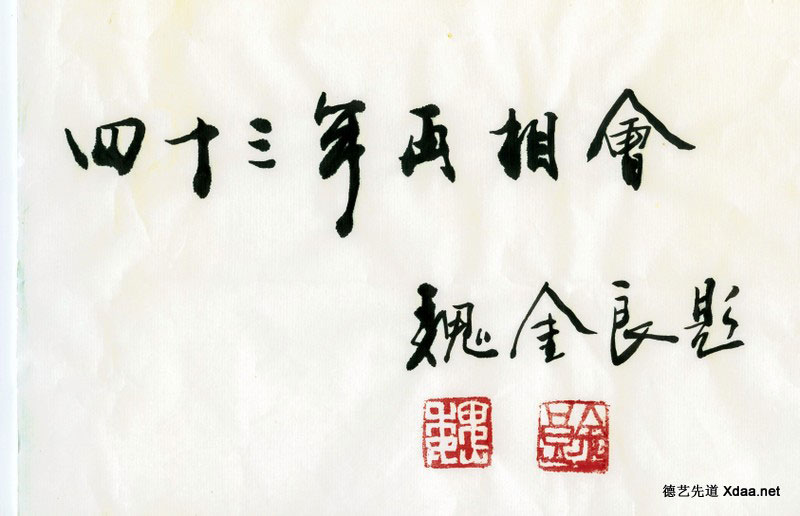 四十三年再相會
魏金良题
魏
金良
德艺先道 Xdaa.net